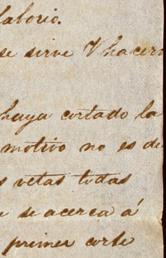 laborio.
se sirve V hacer
haya cortado la
motivo no es de
s vetas todas
se acerca á
primer corte